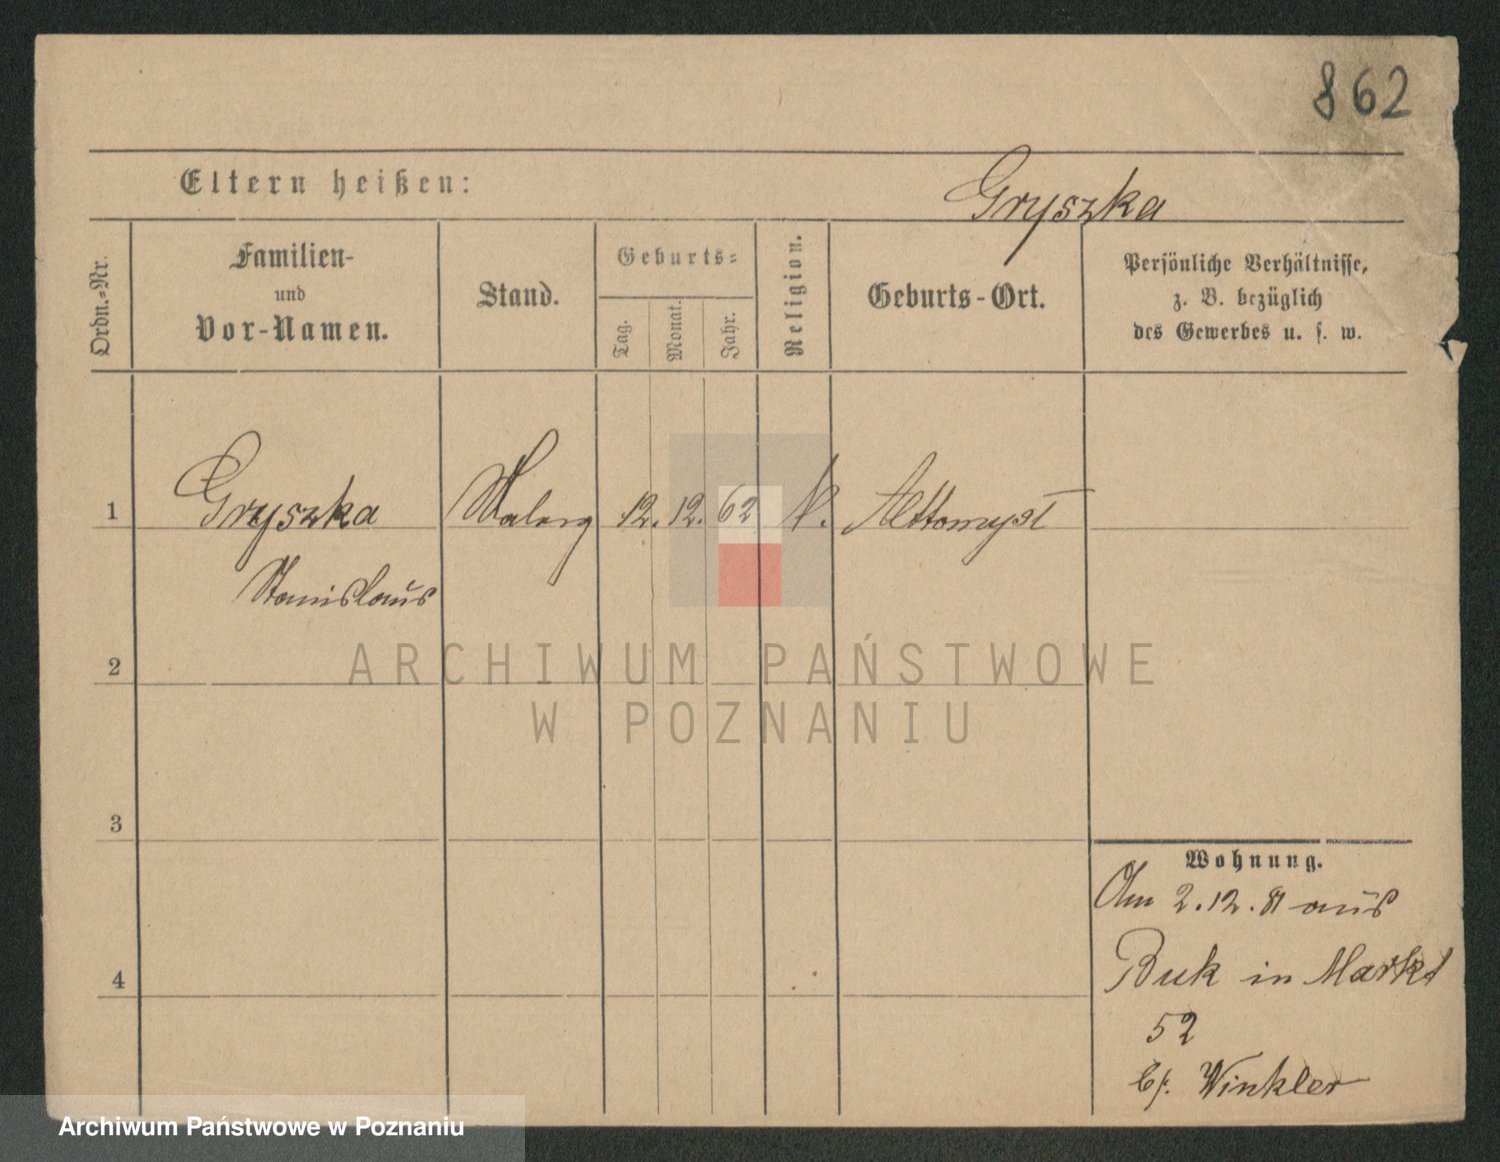 862
Eltern heißen:
Gryszka
Ordn.=Nr.
Familien-
und
Vor-Namen.
Stand.
Geburts=
Tag.
Monat.
Jahr.
Religion.
Geburts-Ort.
Persönliche Verhältnisse,
z. B. bezüglich
des Gewerbes u. s. w.
1 Gryszka 12. 12. 62
Stanislaus
2
3
4
Wohnung.
Am 2.12.81 aus
Buk in Markt
52
Winkler
ARCHIWUM PAŃSTWOWE
W POZNANIU
Archiwum Państwowe w Poznaniu